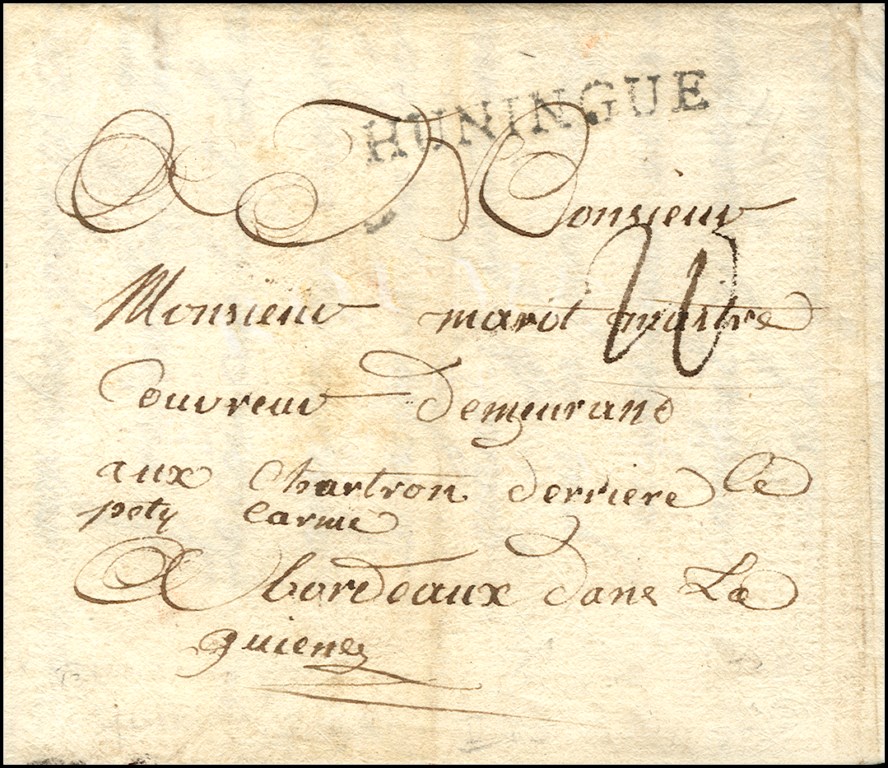 HUNINGUE
A Monsieur
Monsieur marot maistre
couvreur demeurand
aux Chartron derriere le
pety carme
A bordeaux dans La
guiene